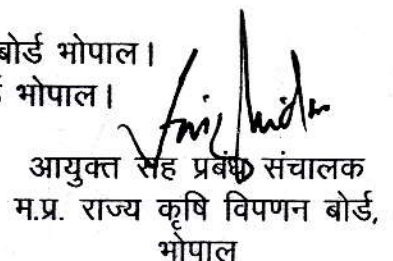 बोर्ड भोपाल।
भोपाल।
आयुक्त सह प्रबंध संचालक
म.प्र. राज्य कृषि विपणन बोर्ड,
भोपाल